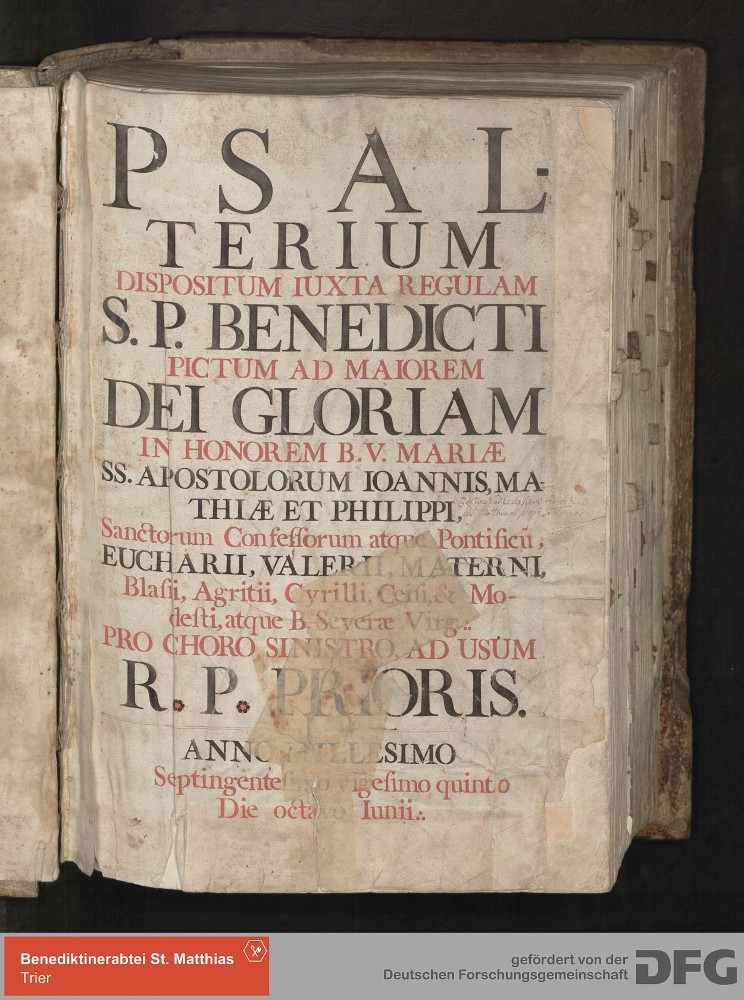 PSAL-
TERIUM
DISPOSITUM IUXTA REGULAM
S. P. BENEDICTI
PICTUM AD MAIOREM
DEI GLORIAM
IN HONOREM B. V. MARIÆ
SS. APOSTOLORUM IOANNIS, MA-
THIÆ ET PHILIPPI,
Sanctorum Confeſſorum atque Pontificũ,
EUCHARII, VALERII, MATERNI,
Blaſii, Agritii, Cyrilli, Celſi, & Mo-
deſti, atque B. Severæ Virg.:
PRO CHORO SINISTRO, AD USUM
R. P. PRIORIS.
ANNO MILLESIMO
Septingenteſimo vigeſimo quinto
Die octavo Iunii.:
Benediktinerabtei St. Matthias
Trier
gefördert von der
Deutschen Forschungsgemeinschaft
DFG